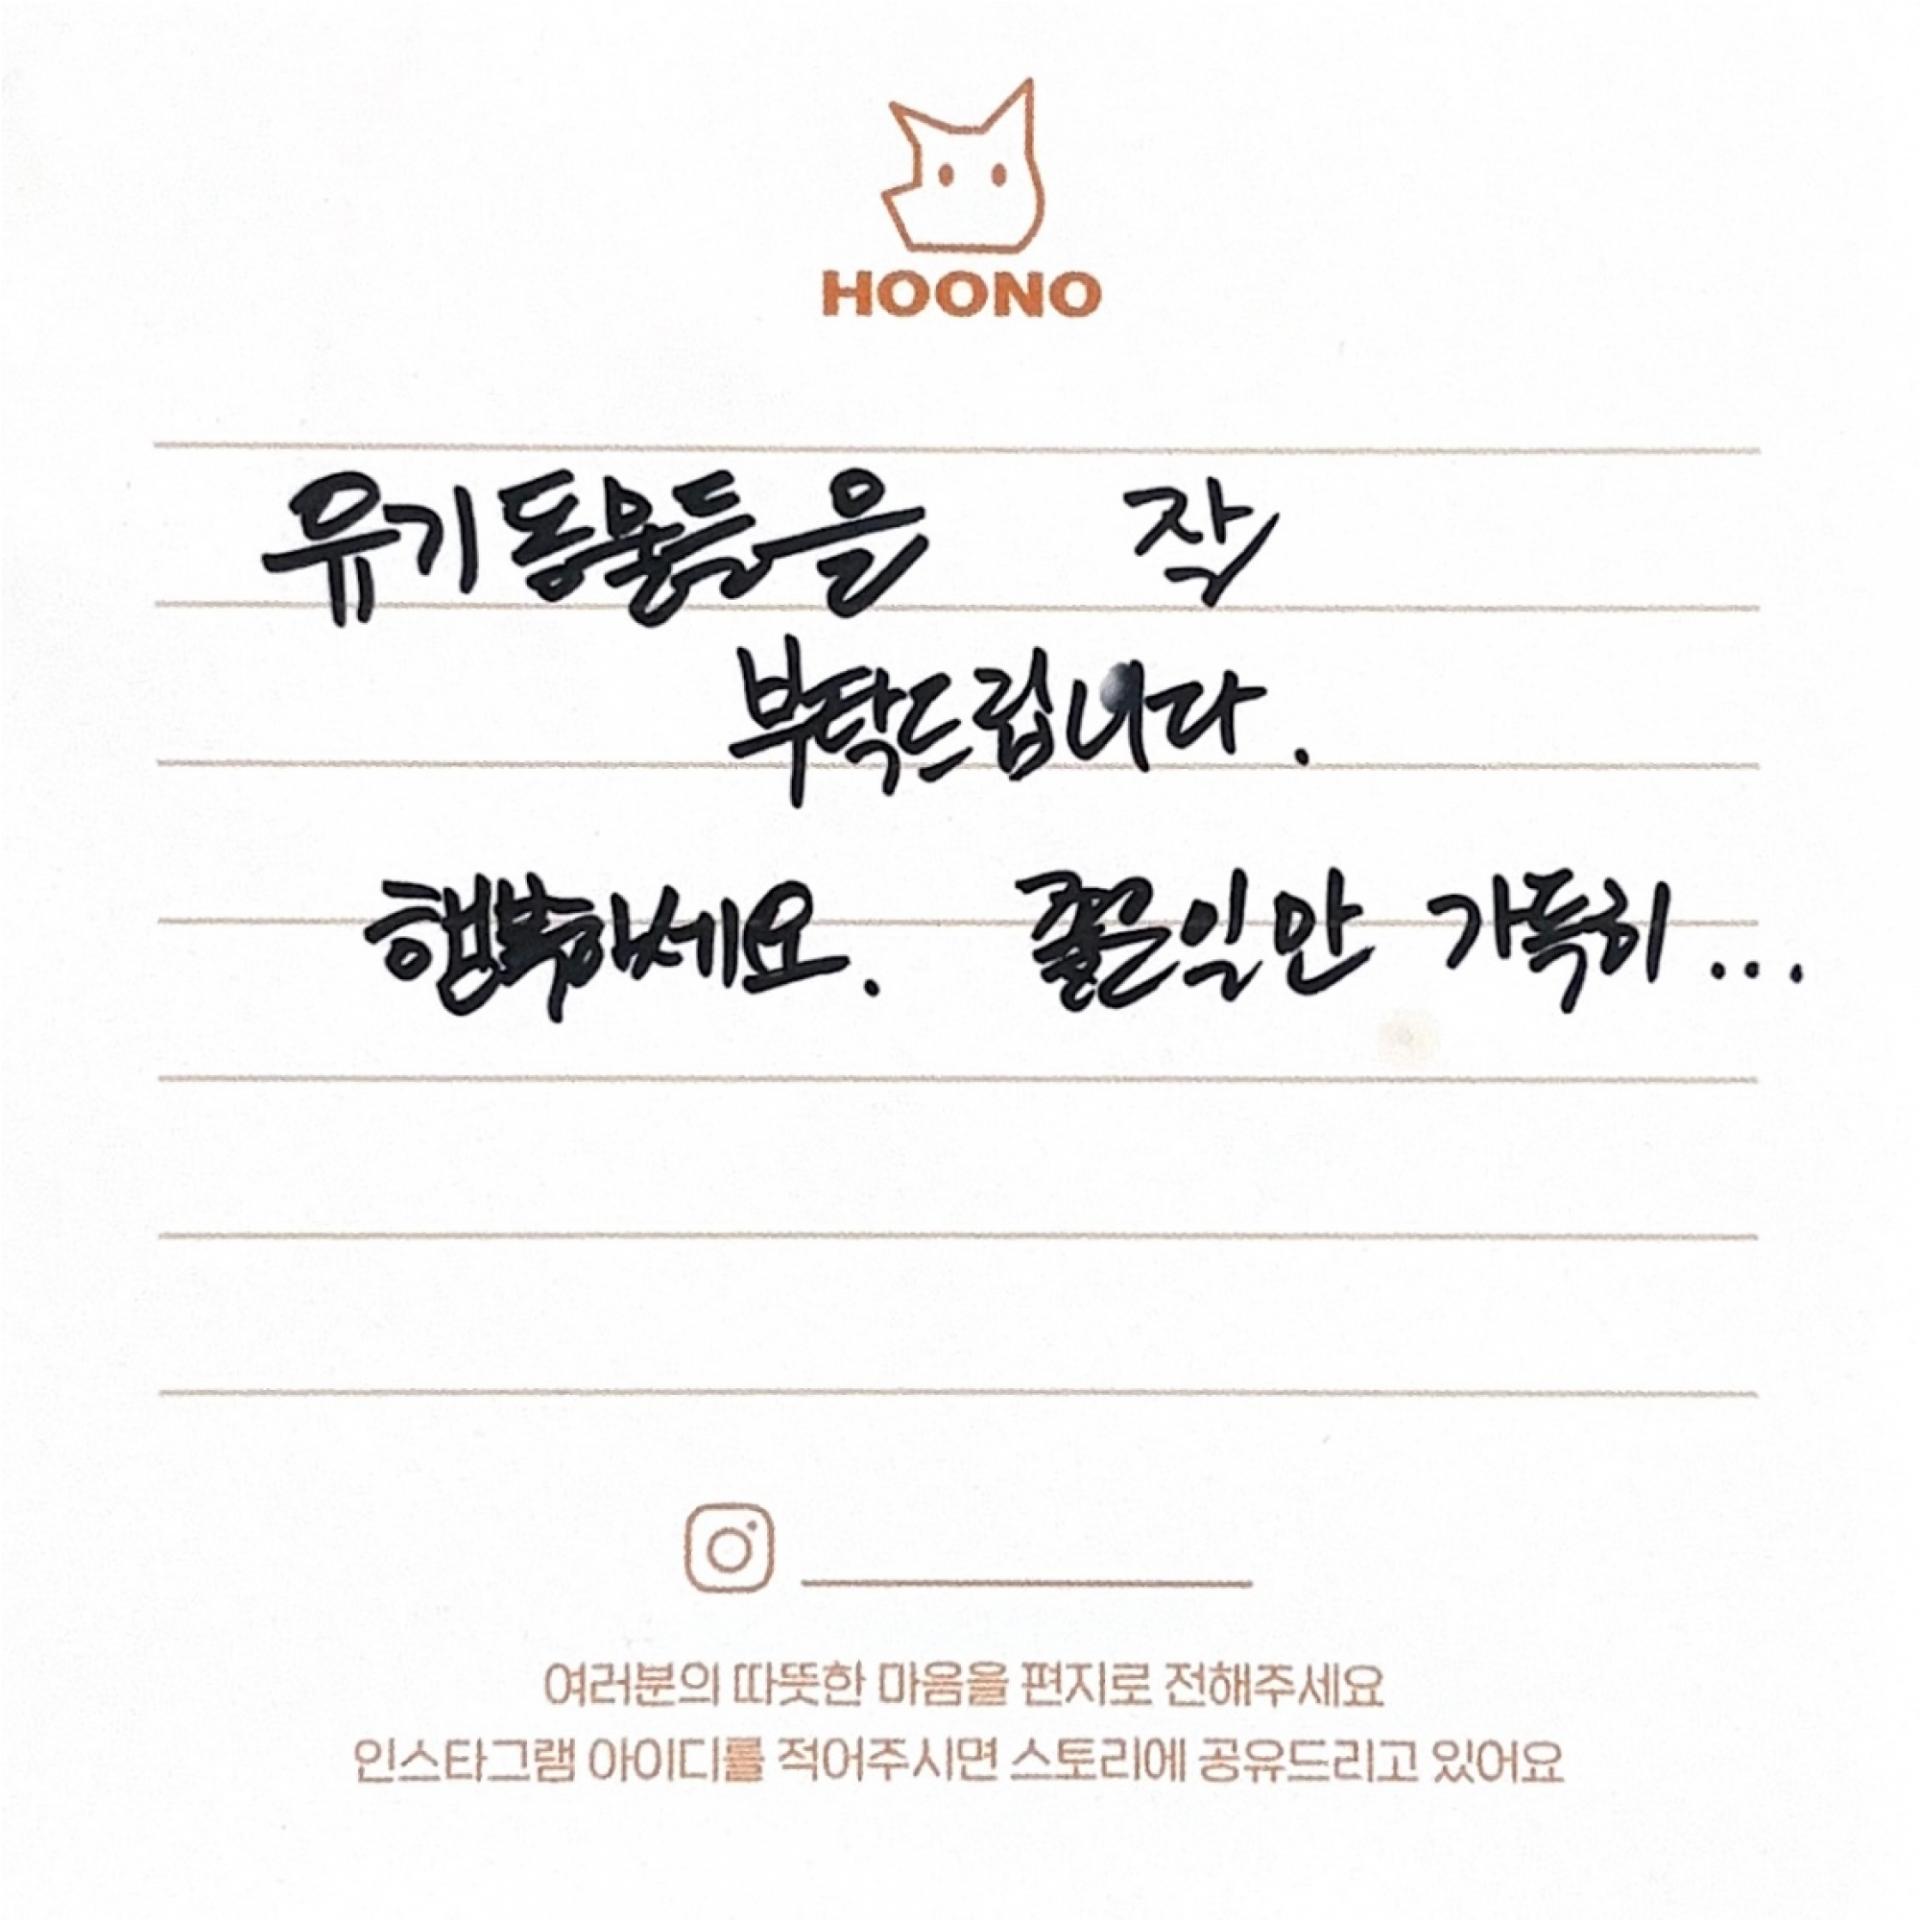 HOONO
유기동물들을 작
부탁드립니다.
행복하세요. 좋은일만 가득히...
여러분의 따뜻한 마음을 편지로 전해주세요
인스타그램 아이디를 적어주시면 스토리에 공유드리고 있어요